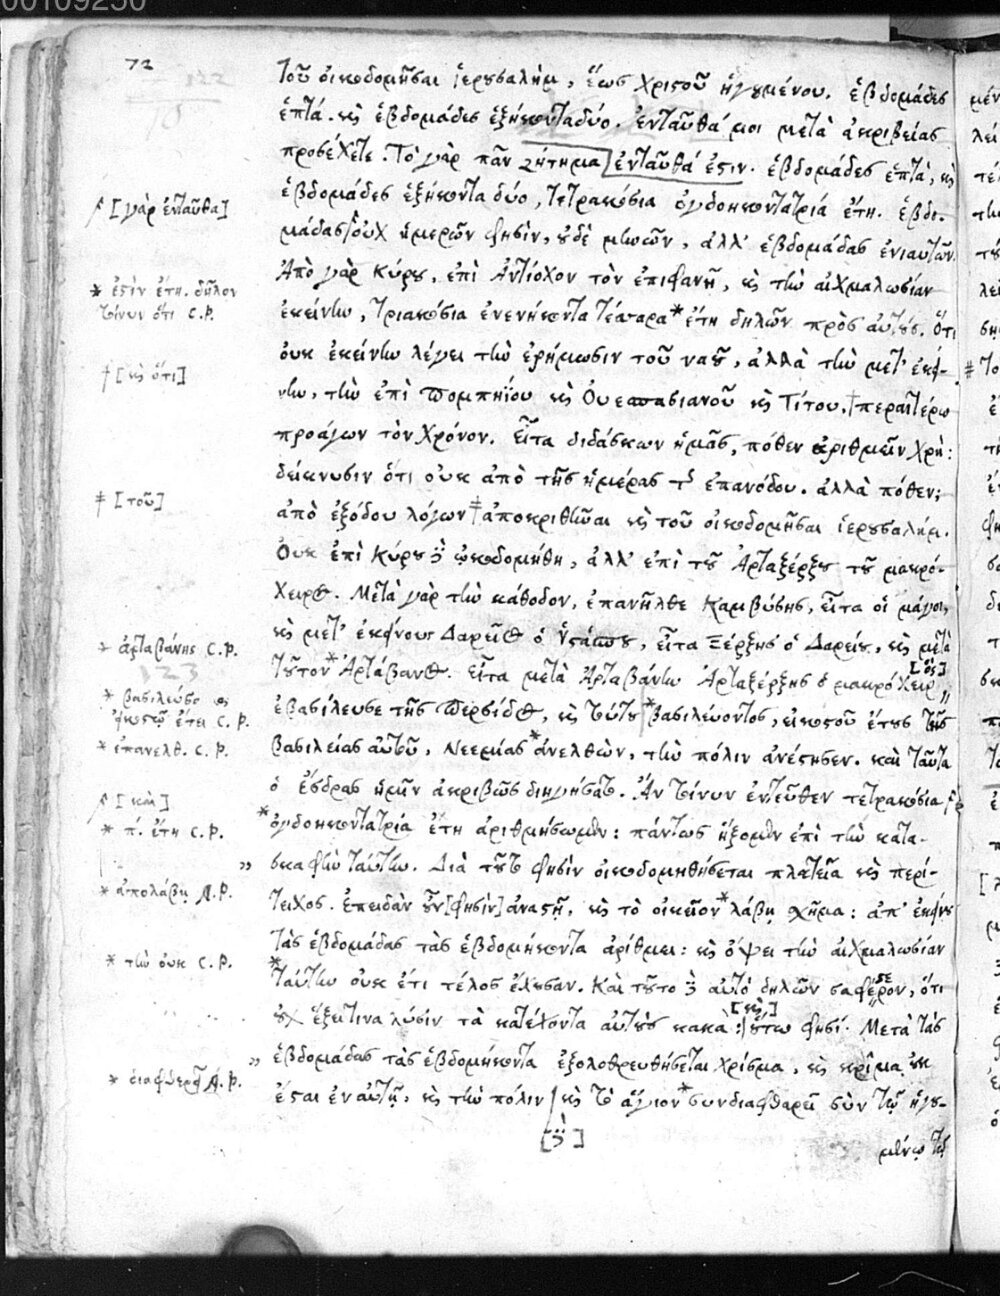 00109250
72
τοῦ οἰκοδομῆσαι ἱερουσαλὴμ, ἕως Χριστοῦ ἡγουμένου. ἑβδομάδες
ἑπτά. καὶ ἑβδομάδες ἑξήκοντα δύο. ἐνταῦθά μοι μετὰ ἀκριβείας
προσέχετε. Τὸ γὰρ πᾶν ζήτημα ἐνταῦθά ἐστιν. ἑβδομάδες ἑπτὰ, καὶ
[γὰρ ἐνταῦθα]
ἑβδομάδες ἑξήκοντα δύο, τετρακόσια ὀγδοηκοντατρία ἔτη. ἑβδο-
μάδας οὐχ ἡμερῶν φησὶν, οὐδὲ μηνῶν, ἀλλ' ἑβδομάδας ἐνιαυτῶν.
Ἀπὸ γὰρ Κύρου, ἐπὶ Ἀντίοχον τὸν ἐπιφανῆ, καὶ τὴν αἰχμαλωσίαν
* ἐστὶν ἔτη. δῆλον
τοίνυν ὅτι C.P.
ἐκείνην, τριακόσια ἐνενήκοντα τέσσαρα * ἔτη δηλῶν πρὸς αὐτούς. Ὅτι
οὐκ ἐκείνην λέγει τὴν ἐρήμωσιν τοῦ ναοῦ, ἀλλὰ τὴν μετ' ἐκεί-
† [καὶ ὅτι]
νην, τὴν ἐπὶ Πομπηΐου καὶ Οὐεσπασιανοῦ καὶ Τίτου, † περαιτέρω
προάγων τὸν χρόνον. Εἶτα διδάσκων ἡμᾶς, πόθεν ἀριθμεῖν χρὴ:
δείκνυσιν ὅτι οὐκ ἀπὸ τῆς ἡμέρας τῆς ἐπανόδου. ἀλλὰ πόθεν;
‡ [τοῦ]
ἀπὸ ἐξόδου λόγων ‡ ἀποκριθῆναι καὶ τοῦ οἰκοδομῆσαι ἱερουσαλήμ.
Οὐκ ἐπὶ Κύρου δὲ ᾠκοδομήθη, ἀλλ' ἐπὶ τοῦ Ἀρταξέρξου τοῦ μακρό-
χειρος. Μετὰ γὰρ τὴν κάθοδον, ἐπανῆλθε Καμβύσης, εἶτα οἱ μάγοι,
καὶ μετ' ἐκείνους Δαρεῖος ὁ Ὑστάσπου, εἶτα Ξέρξης ὁ Δαρείου, καὶ μετὰ
* ἀρταβάνης C.P.
τοῦτον * Ἀρτάβανος. Εἶτα μετὰ Ἀρταβάνην Ἀρταξέρξης ὁ μακρόχειρ
[ὃς]
ἐβασίλευσε τῆς Περσίδος, καὶ τούτου * βασιλεύοντος, εἰκοστοῦ ἔτους τῆς
* βασιλεύσας
εἰκοστῷ ἔτει C.P.
βασιλείας αὐτοῦ, Νεεμίας * ἀνελθὼν, τὴν πόλιν ἀνέστησεν. καὶ ταῦτα
* ἐπανελθ. C.P.
ὁ Ἔσδρας ἡμῖν ἀκριβῶς διηγήσατο. Ἂν τοίνυν ἐντεῦθεν τετρακόσια
[καὶ]
* ὀγδοηκοντατρία ἔτη ἀριθμήσωμεν: πάντως ἥξομεν ἐπὶ τὴν κατα-
* π. ἔτη C.P.
σκαφὴν ταύτην. Διὰ τοῦτο φησὶν οἰκοδομηθήσεται πλατεῖα καὶ περί-
τειχος. Ἐπειδὰν οὖν [φησὶν] ἀναστῇ, καὶ τὸ οἰκεῖον * λάβῃ σχῆμα: ἀπ' ἐκείνου
* ἀπολάβῃ Α.P.
τὰς ἑβδομάδας τὰς ἑβδομήκοντα ἀρίθμει: καὶ ὄψει τὴν αἰχμαλωσίαν
* ταύτην οὐκ ἔτι τέλος ἔχουσαν. Καὶ τοῦτο δὲ αὐτὸ δηλῶν σαφέστερον, ὅτι
* τὴν οὐκ C.P.
οὐχ ἕξει τινα λύσιν τὰ κατέχοντα αὐτοὺς κακά: οὕτω φησί. Μετὰ τὰς
[καὶ]
ἑβδομάδας τὰς ἑβδομήκοντα ἐξολοθρευθήσεται χρίσμα, καὶ κρίμα οὐκ
ἔσται ἐν αὐτῇ, καὶ τὴν πόλιν καὶ τὸ ἅγιον * συνδιαφθαρεῖ σὺν τῷ ἡγου-
* διαφθερεῖ Α.P.
[δὲ]
μένῳ τῷ